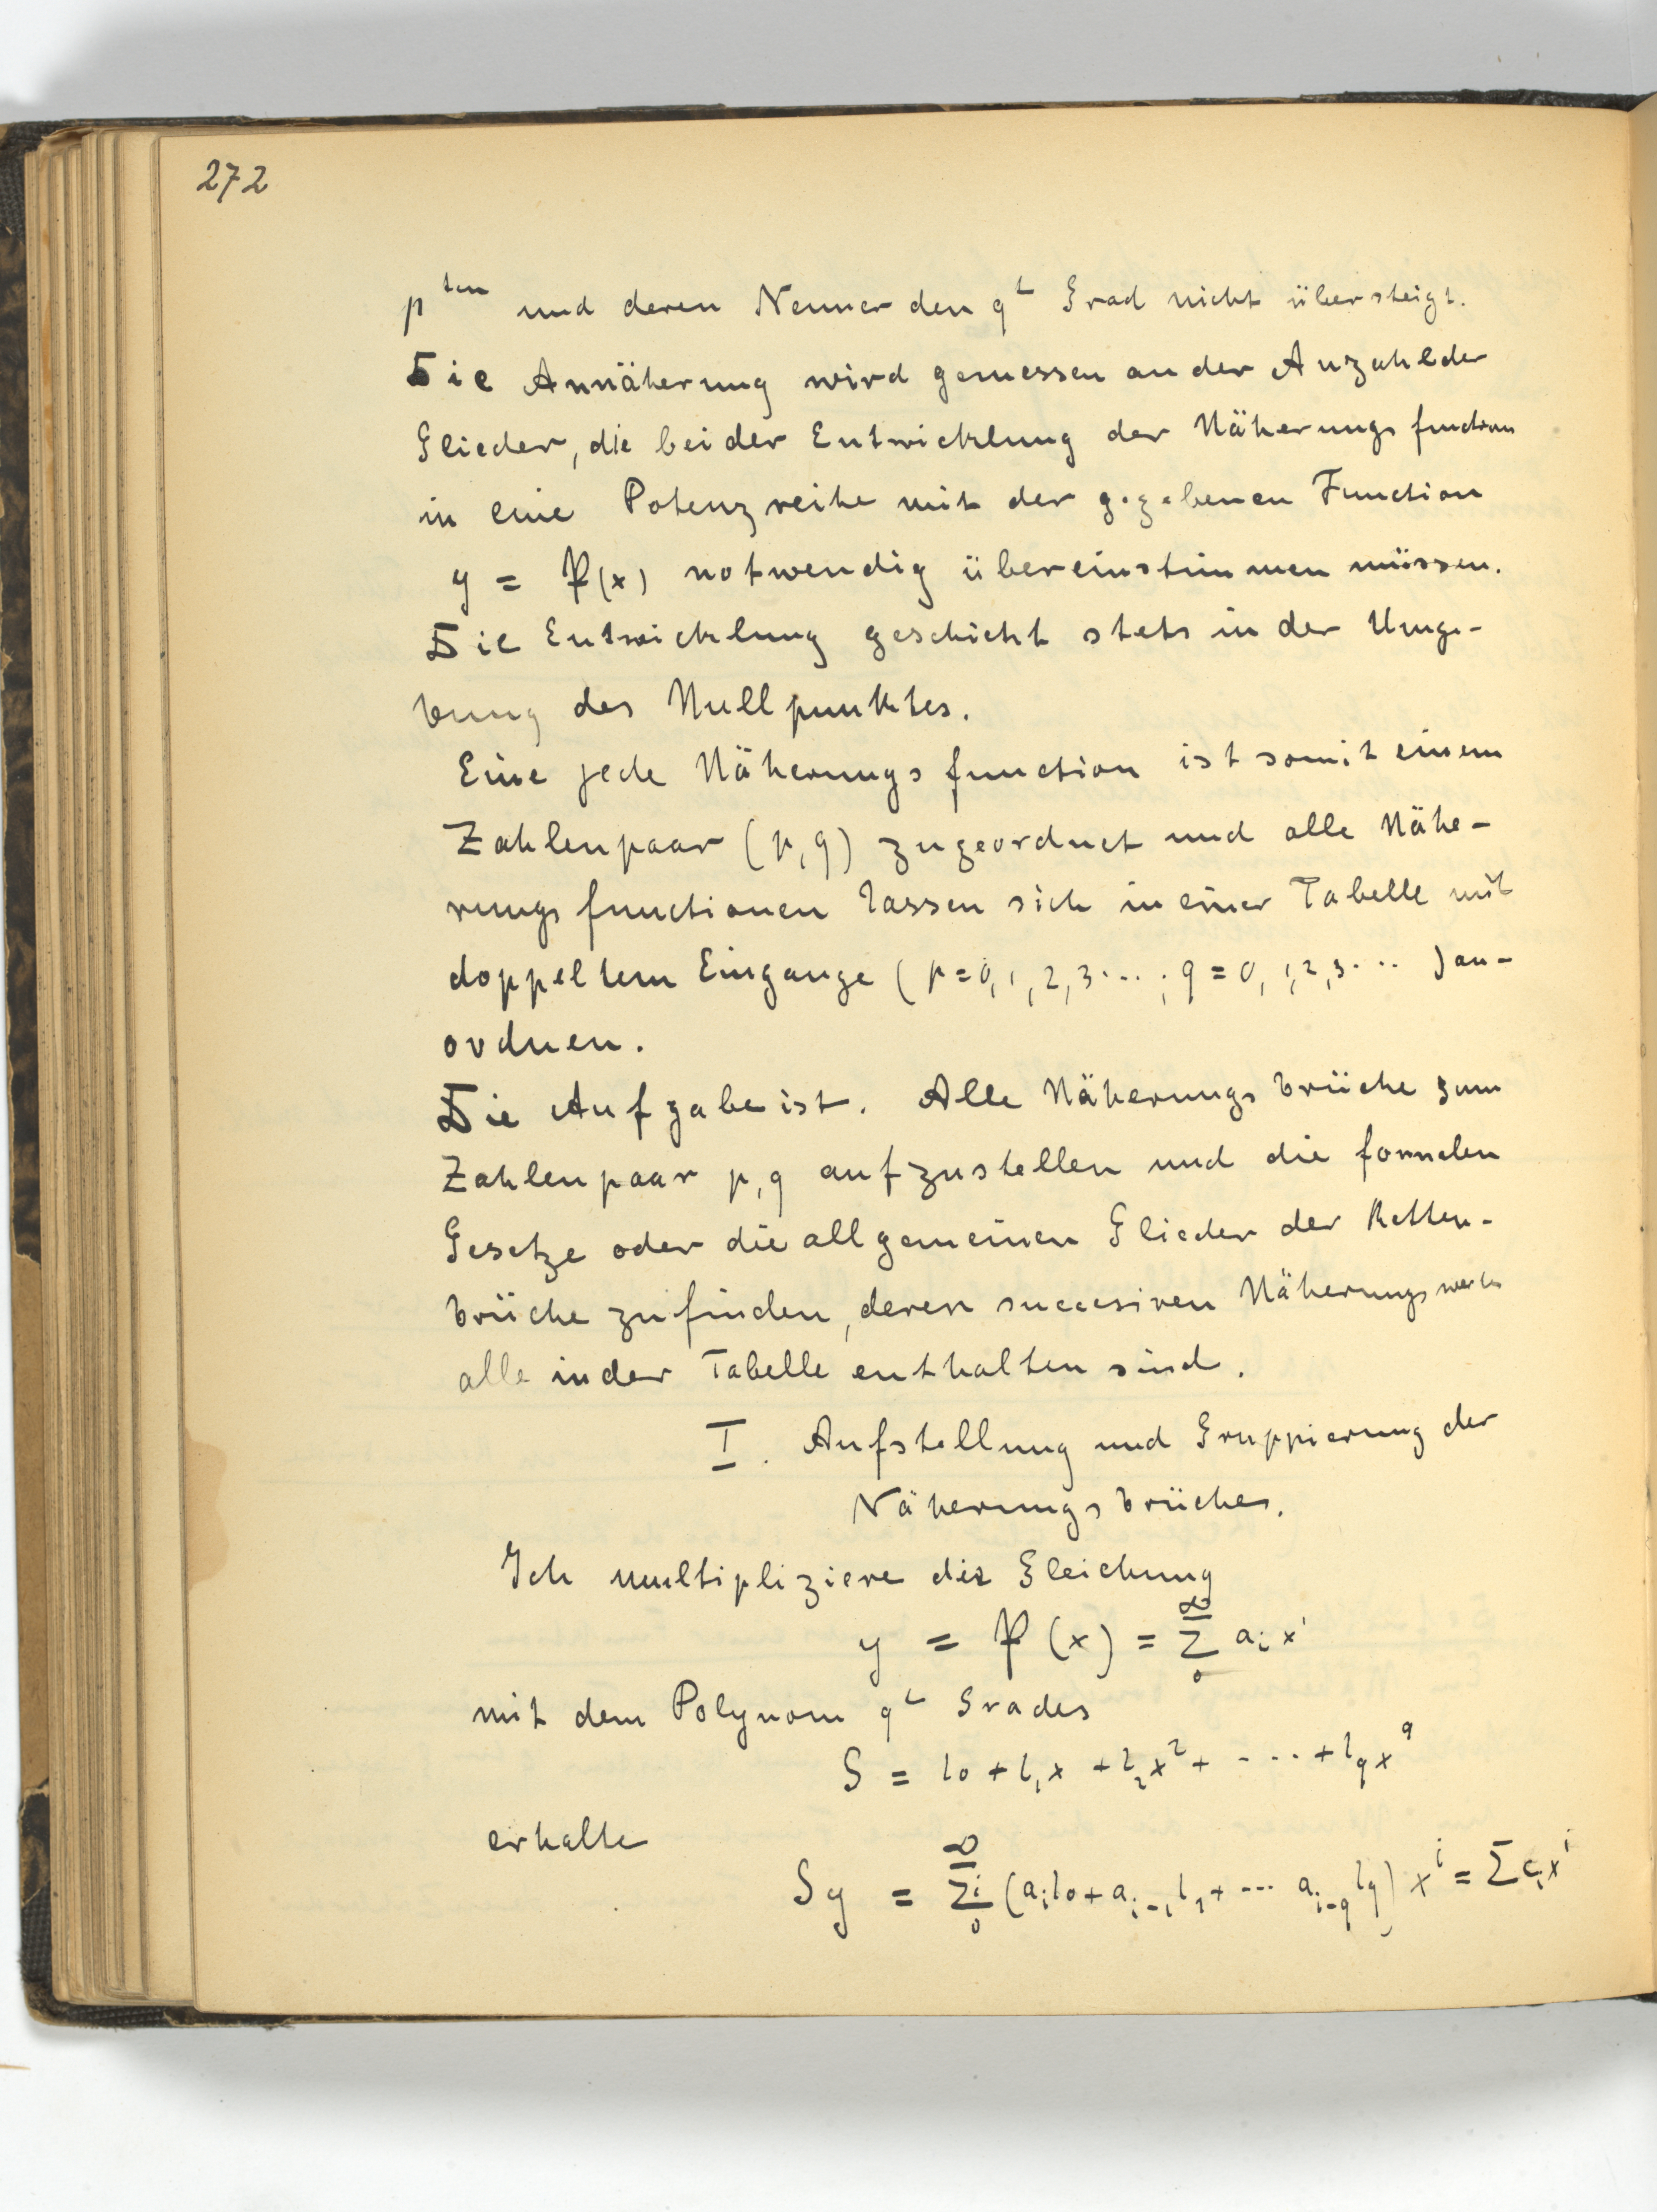 272
p^ten und deren Nenner den q^t Grad nicht übersteigt.
Die Annäherung wird gemessen an der Anzahl der
Glieder, die bei der Entwicklung der Näherungsfunction
in eine Potenzreihe mit der gegebenen Function
y = P(x) notwendig übereinstimmen müssen.
Die Entwicklung geschieht stets in der Umge-
bung des Nullpunktes.
Eine jede Näherungsfunction ist somit einem
Zahlenpaar (p,q) zugeordnet und alle Nähe-
rungsfunctionen lassen sich in einer Tabelle mit
doppeltem Eingange (p=0,1,2,3...; q=0,1,2,3... ) an-
ordnen.
Die Aufgabe ist. Alle Näherungsbrüche zum
Zahlenpaar p,q aufzustellen und die formalen
Gesetze oder die allgemeinen Glieder der Ketten-
brüche zu finden, deren succesiven Näherungswerte
alle in der Tabelle enthalten sind.
I. Aufstellung und Gruppierung der
Näherungsbrüche.
Ich multipliziere die Gleichung
y = P(x) = ∞ Σ 0 a_i x^i
mit dem Polynom q^t Grades
S = l_0 + l_1 x + l_2 x^2 + .... + l_q x^q
erhalte
Sy = ∞ Σ^i 0 (a_i l_0 + a_{i-1} l_1 + ... a_{i-q} l_q) x^i = Σ c_i x^i